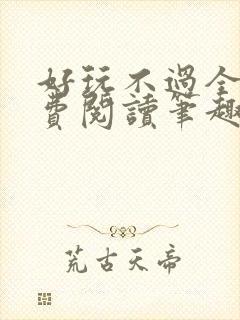 好玩不過全
費閱讀筆趣
荒古天帝